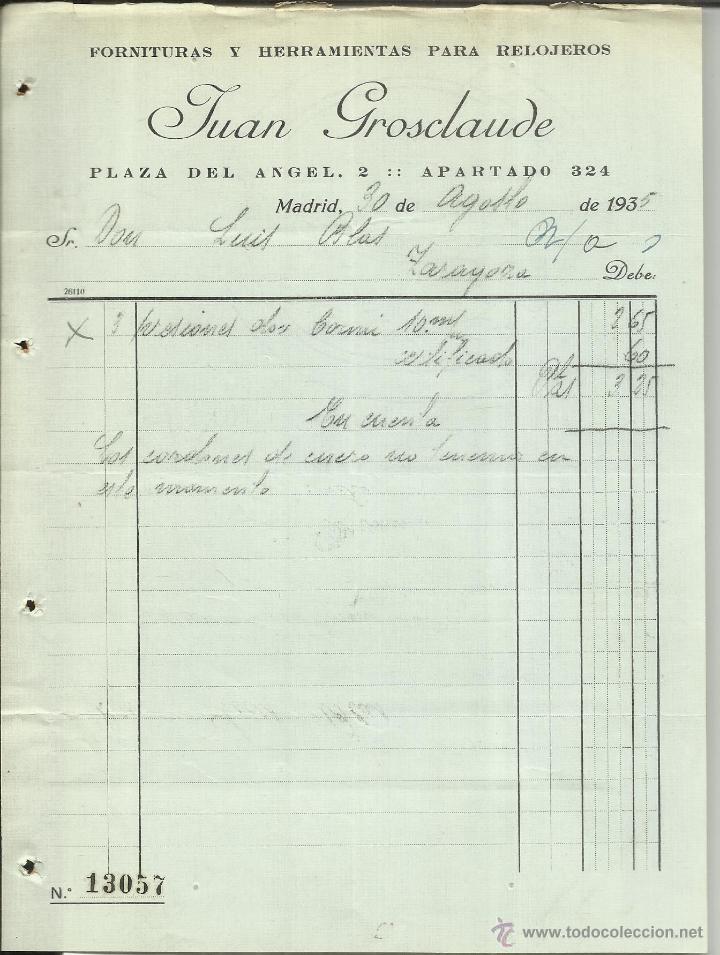 FORNITURAS Y HERRAMIENTAS PARA RELOJEROS
Juan Grosclaude
PLAZA DEL ANGEL, 2 :: APARTADO 324
Madrid, 30 de Agosto de 1935
Sr. Don Luis Blas
Zaragoza Debe:
26110
X 3 10 m/m 2 65
certificado 60
Pts 3 25
En cuenta
Los cordones de cuero no tenemos en
este momento
N.° 13057
www.todocoleccion.net